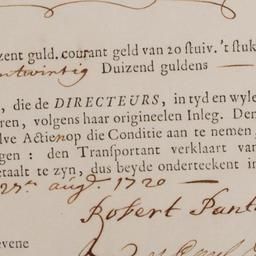 zent guld. courant geld van 20 stuiv. 't stuk
twintig Duizend guldens
, die de DIRECTEURS, in tyd en wyle
ren, volgens haar origineelen Inleg. Den
lve Actien op die Conditie aan te nemen,
gen: den Transportant verklaart van
etaalt te zyn, dus beyde onderteekent in
27en augt. 1720
Robert Pant
evene